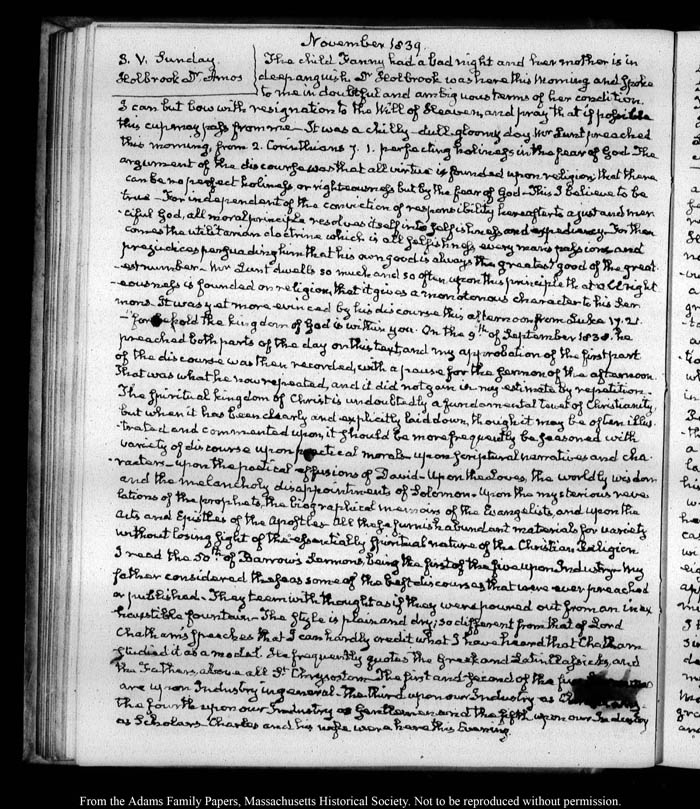 November 1839.
S. V. Sunday.
Holbrook Dr. Amos
The child Fanny had a bad night and her mother is in
deep anguish. Dr. Holbrook was here this Morning and spoke
to me in doubtful and ambiguous terms of her condition.
I can but bow with resignation to the Will of Heaven, and pray that if possible
this cup may pass from me. It was a chilly dull gloomy day Mr Lunt preached
this morning, from 2. Corinthians 7. 1. perfecting holiness in the fear of God. The
argument of the discourse was that all virtue is founded upon religion; that there
can be no perfect holiness or righteousness but by the fear of God. This I believe to be
true. For independent of the conviction of responsibility hereafter to a just and mer
-ciful God, all moral principle resolves itself into selfishness and expediency. For then
comes the utilitarian doctrine which is all selfishness every man's passions and
prejudices persuading him that his own good is always the greatest good of the great
-est number. Mr Lunt dwells so much, and so often upon this principle that all right
-eousness is founded on religion, that it gives a monotonous character to his Ser
mons. It was yet more evinced by his discourse this afternoon from Luke 17. 21.
-"for behold the kingdom of God is within you. On the 9th of September 1838. he
preached both parts of the day on this text, and my approbation of the first part
of the discourse was then recorded, with a pause for the sermon of the afternoon.
That was what he now repeated, and it did not gain in my estimate by repetition.
The spiritual kingdom of Christ is undoubtedly a fundamental tenet of Christianity,
but when it has been clearly and explicitly laid down, though it may be often illus
-trated and commented upon, it should be more frequently be seasoned with
variety of discourse upon practical morals upon scriptural narratives and cha
-racters—upon the poetical effusions of David. Upon the loves, the worldly wisdom
and the melancholy disappointments of Solomon. Upon the mysterious reve
lations of the prophets, the biographical memoirs of the Evangelists, and upon the
Acts and Epistles of the Apostles. All these furnish abundant materials for variety
without losing sight of the essentially spiritual nature of the Christian Religion
I read the 50th of Barrow's Sermons, being the first of the five upon Industry. My
father considered these as some of the best discourses that were ever preached
or published. They teem with thought as if they were poured out from an inex
haustible fountain. The style is plain and dry; so different from that of Lord
Chatham's speeches that I can hardly credit what I have heard that Chatham
studied it as a model. He frequently quotes the Greek and Latin Classicks, and
the Fathers, above all St. Chrysostom. The first and second of the
are upon Industry in general. The third upon our Industry as
the fourth upon our Industry as Gentlemen and the fifth upon our Industry
as Scholars. Charles and his wife were here this Evening.
From the Adams Family Papers, Massachusetts Historical Society. Not to be reproduced without permission.